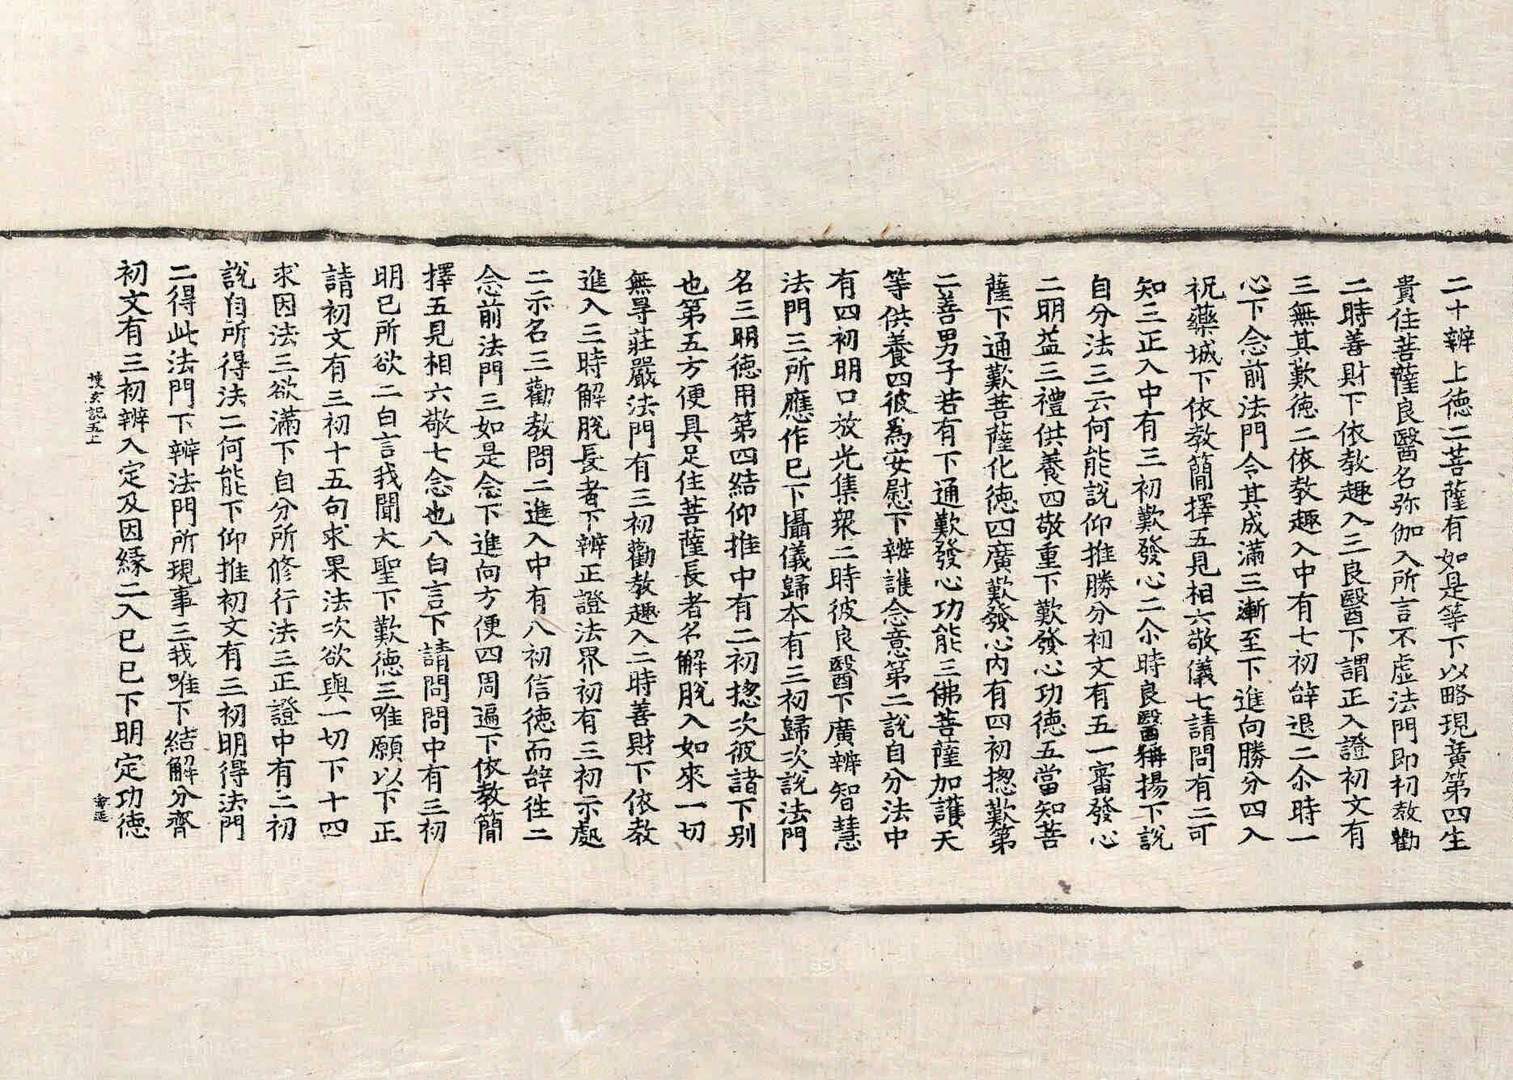 二十辨上德二菩薩有如是等下以略現廣第四生
貴住菩薩良醫名弥伽入所言不虛法門即初教勸
二時善財下依教趣入三良醫下謂正入證初文有
三無其歎德二依教趣入中有七初辞退二尒時一
心下念前法門令其成滿三漸至下進向勝分四入
祝藥城下依教簡擇五見相六敬儀七請問有二可
知三正入中有三初歎發心二尒時良醫稱揚下說
自分法三云何能說仰推勝分初文有五一審發心
二明益三禮供養四敬重下歎發心功德五當知菩
薩下通歎菩薩化德四廣歎發心內有四初揔歎第
二善男子若有下通歎發心功能三佛菩薩加護天
等供養四彼為安慰下辨護念意第二說自分法中
有四初明口放光集衆二時彼良醫下廣辨智慧
法門三所應作已下攝儀歸本有三初歸次說法門
名三明德用第四結仰推中有二初揔次彼諸下別
也第五方便具足住菩薩長者名解脫入如來一切
無㝵莊嚴法門有三初勸教趣入二時善財下依教
進入三時解脫長者下辨正證法界初有三初示處
二示名三勸教問二進入中有八初信德而辞徃二
念前法門三如是念下進向方便四周遍下依教簡
擇五見相六敬七念也八白言下請問問中有三初
明已所欲二白言我聞大聖下歎德三唯願以下正
請初文有三初十五句求果法次欲與一切下十四
求因法三欲滿下自分所修行法三正證中有二初
說自所得法二何能下仰推初文有三初明得法門
二得此法門下辨法門所現事三我唯下結解分齊
初文有三初辨入定及因緣二入已已下明定功德
搜玄記五上